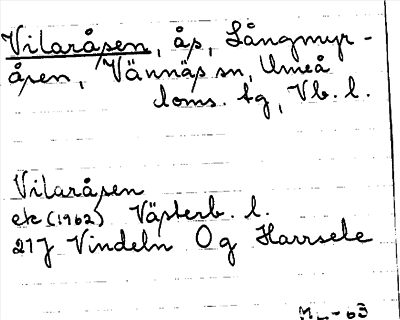 Vilaråsen, ås, Långmyr-
åsen, Vännäs sn, Umeå
loms. tg, Vb. l.
Vilaråsen
ek (1962) Västerb. l.
21J Vindeln Og Harrsele
ML-63